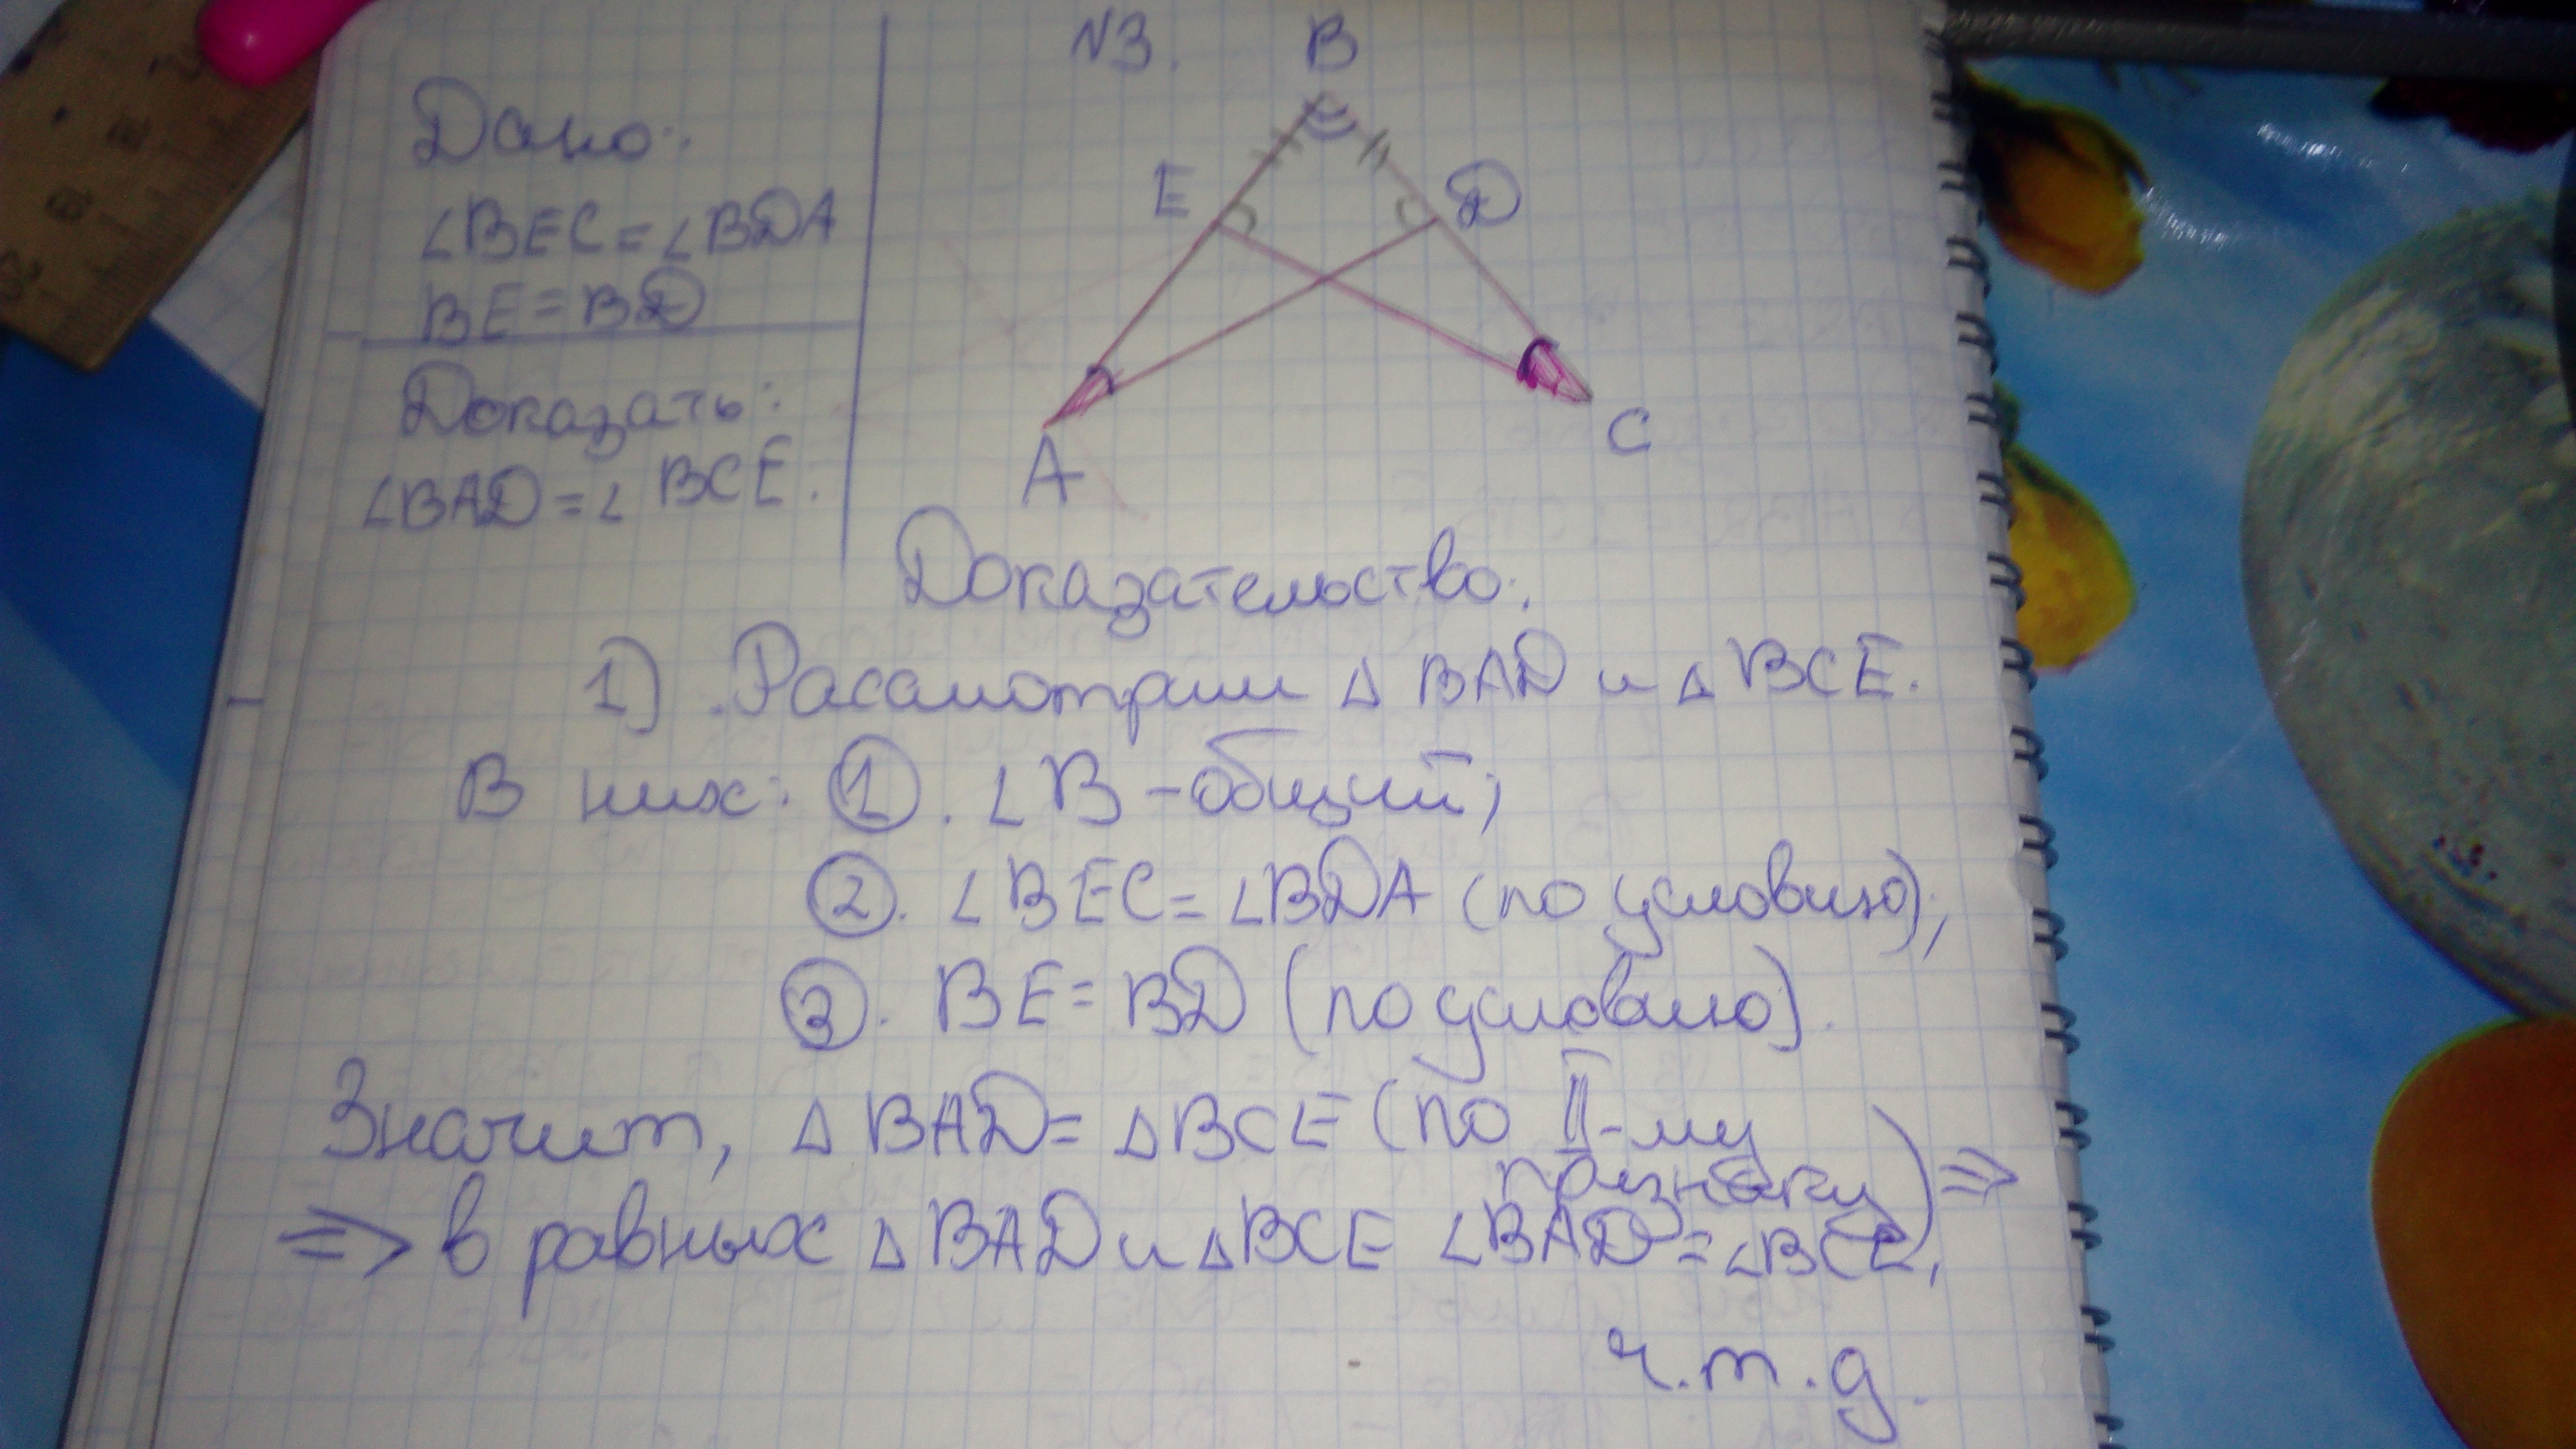 N3.
Дано:
∠BEC=∠BDA
BE=BD
Доказать:
∠BAD=∠BCE.
B
E
D
A
C
Доказательство:
1). Рассмотрим △ BAD и △ BCE.
В них: ①. ∠B-общий;
②. ∠BEC=∠BDA (по условию);
③. BE=BD (по условию).
Значит, △ BAD= △BCE (по II-му
признаку) ⇒
⇒ в равных △BAD и △BCE ∠BAD=∠BCE,
ч.т.д.